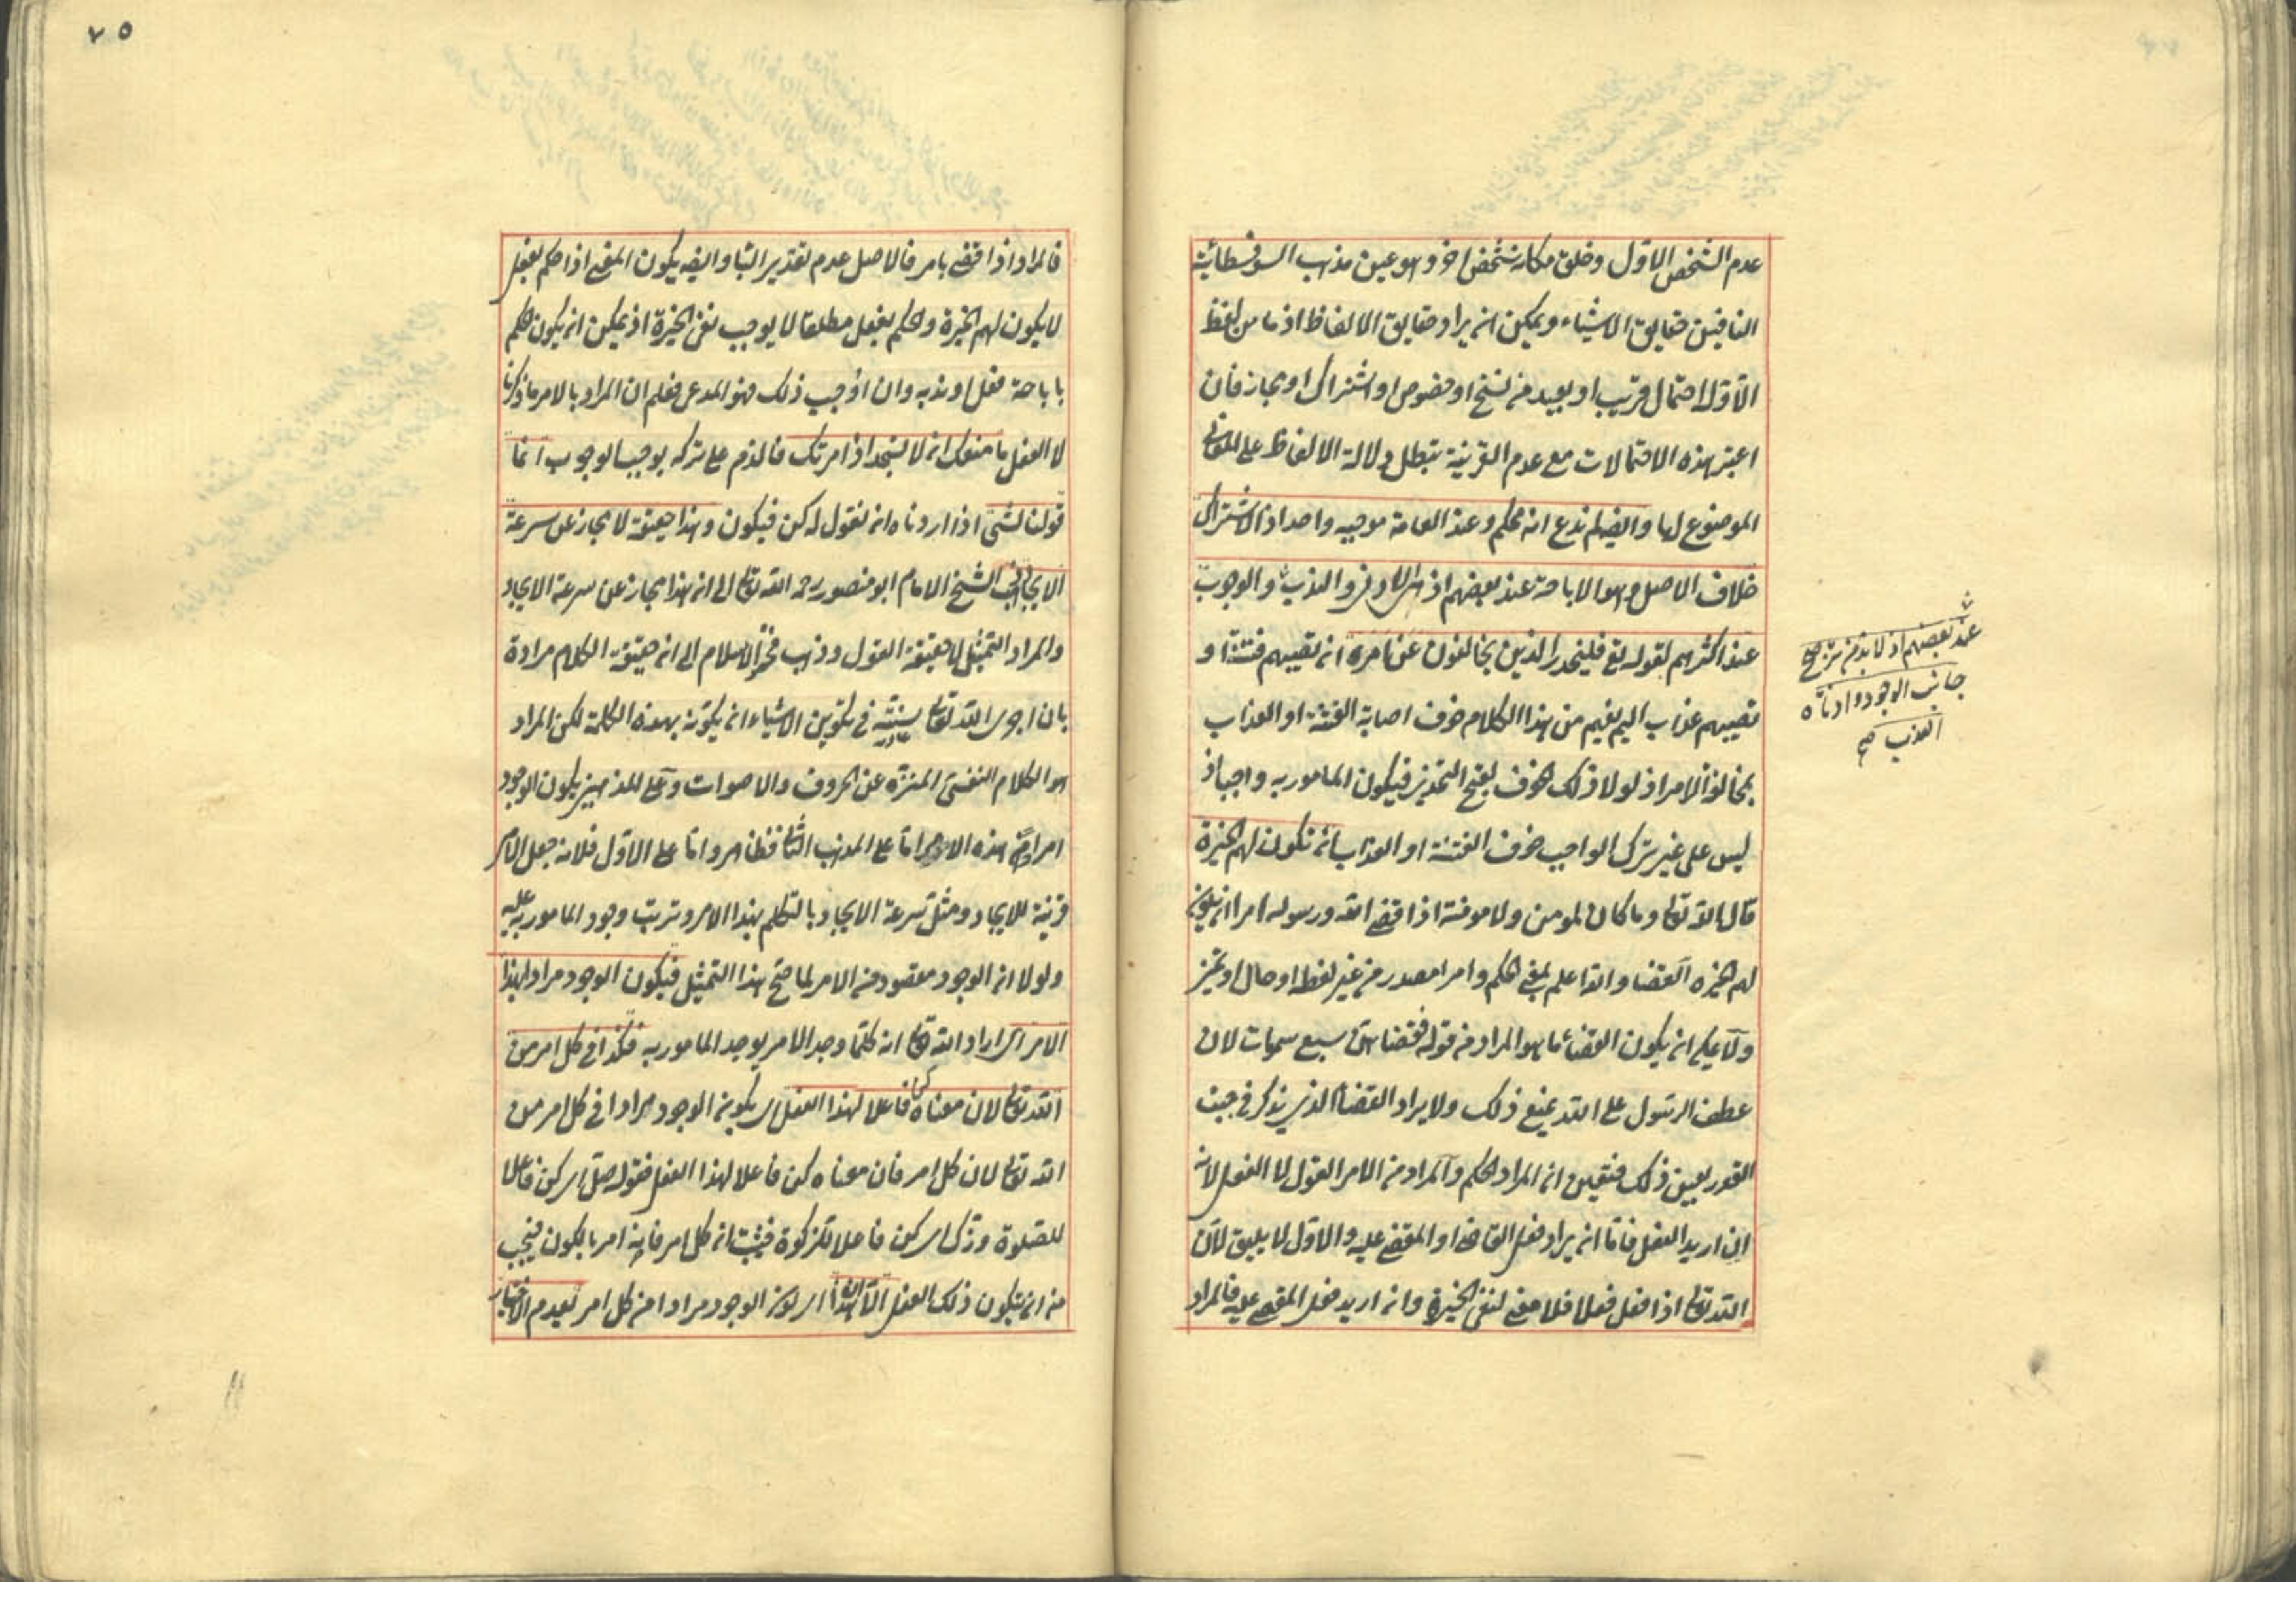 عدم الشخص الاول وخلق مكانه شخص اخر وهو عين مذهب السوفسطائية
النافين حقايق الاشياء ويمكن ان يراد حقايق الالفاظ اذ ما من لفظ
الا وله احتمال قريب او بعيد من نسخ او خصوص او اشتراك او مجاز فان
اعتبر هذه الاحتمالات مع عدم القرينة تبطل دلالة الالفاظ على المعاني
الموضوع لها وايضا لم ندع انه محكم وعند العامة موجبه واحد اذ الاشتراك
خلاف الاصل وهو الاباحة عند بعضهم اذ هي الادنى والندب والوجوب
عند بعضهم اذ لا بد من ترجيح
جانب الوجود وادناه
الندب صح
عند اكثرهم لقوله تع فليحذر الذين يخالفون عن امره ان تصيبهم فتنة او
تصيبهم عذاب اليم يفهم من هذا الكلام خوف اصابة الفتنة او العذاب
بمخالفة الامر اذ لولا ذلك الخوف لقبح التحذير فيكون المامور به واجبا اذ
ليس على غير ترك الواجب خوف الفتنة او العذاب ان تكون لهم الخيرة
قال الله تعالى وما كان لمومن ولا مومنة اذا قضى الله ورسوله امرا ان يكون
لهم الخيرة القضا والله اعلم بمعنى الحكم وامرا مصدر من غير لفظه او حال او تميز
ولا يمكن ان يكون القضاء ما هو المراد من قوله فقضاهن سبع سموات لان
عطف الرسول على الله يمنع ذلك ولا يراد القضاء الذي يذكر في جنب
القدر بعين ذلك فتعين ان المراد الحكم والمراد من الامر القول لا الفعل لانه
ان اريد الفعل فاما ان يراد فعل القاضي او المقضي عليه والاول لا يليق لان
الله تعالى اذا فعل فعلا فلا معنى لنفي الخيرة وان اريد فعل المقضي عليه فالمراد
٧٥
فالمراد اذا قضى بامر فالاصل عدم تقدير الباء وايضا يكون المعنى اذا حكم بفعل
لا يكون لهم الخيرة والحكم بفعل مطلقا لا يوجب نفي الخيرة اذ يمكن ان يكون الحكم
باباحة فعل او ندبه وان اوجب ذلك فهو المدعى فعلم ان المراد بالامر ما ذكرنا
لا الفعل ما منعك ان لا تسجد اذ امرتك فالذم على تركه يوجب الوجوب انما
قولنا لشئ اذا اردناه ان نقول له كن فيكون وهذا حقيقة لا مجاز عن سرعة
الايجاد ذهب الشيخ الامام ابو منصور رحمه الله تعالى الى ان هذا مجاز عن سرعة الايجاد
والمراد التمثيل لا حقيقة القول وذهب فخر الاسلام الى ان حقيقة الكلام مرادة
بان اجرى الله تعالى سنته في تكوين الاشياء ان يكونه بهذه الكلمة لكن المراد
هو الكلام النفسي المنزه عن الحروف والاصوات وعلى المذهبين يكون الوجود
مرادا من هذه الامر اما على المذهب الثاني فظاهر واما على الاول فلانه جعل الامر
قرينة للايجاد ومثل سرعة الايجاد بالتكلم بهذا الامر وترتب وجود المامور به عليه
ولولا ان الوجود مقصود من الامر لما صح هذا التمثيل فيكون الوجود مرادا بهذا
الامر اي اراد الله تعالى انه كلما وجد الامر يوجد المامور به فكذا في كل امر من
الله تعالى لان معناه كن فاعلا لهذا الفعل اي يكون الوجود مرادا في كل امر من
الله تعالى لان كل امر فان معناه كن فاعلا لهذا الفعل فقوله صل اي كن فاعلا
للصلوة وزك اي كن فاعلا للزكوة فيثبت ان كل امر فانه امر بالكون فيجب
من ان يتكون ذلك الفعل الا ان هذا اي كون الوجود مرادا من كل امر يعدم الاختيار